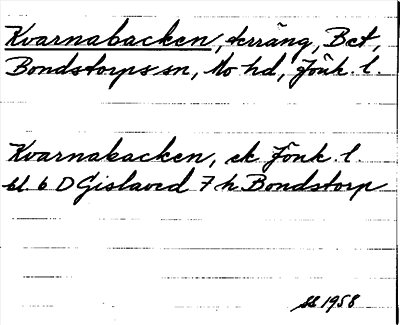 Kvarnabacken, terräng, Bet,
Bondstorps sn, Mo hd, Jönk. l.
Kvarnabacken, ek Jönk. l.
bl 6 D Gislaved 7 h Bondstorp
1958